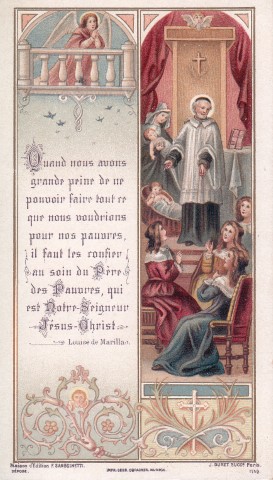 Quand nous avons
grande peine de ne
pouvoir faire tout ce
que nous voudrions
pour nos pauvres,
il faut les confier
au soin du Père
des Pauvres, qui
est Notre-Seigneur
Jésus-Christ
Louise de Marillac
Maison d'Edition F. BARBOINETTI.
DÉPOSÉ.
J. BURET SUCR Paris.